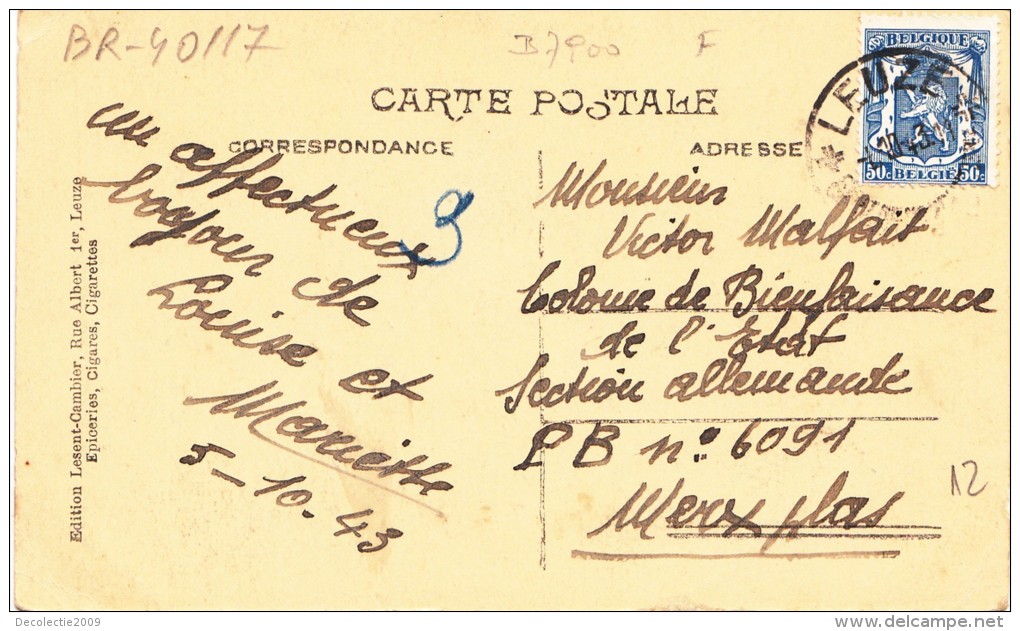 BR-40117
B7900 F
CARTE POSTALE
CORRESPONDANCE
ADRESSE
BELGIQUE
50c 50c
BELGIË
LEUZE
un affectueux
bonjour de
Louise et
Mariette
5-10.43
9
Monsieur
Victor Malfait
Colonie de Bienfaisance
de l'Etat
Section allemande
PB n° 6091
Merxplas
12
Edition Lesent-Cambier, Rue Albert 1er, Leuze
Epiceries, Cigares, Cigarettes
Decolectie2009
delcampe.net